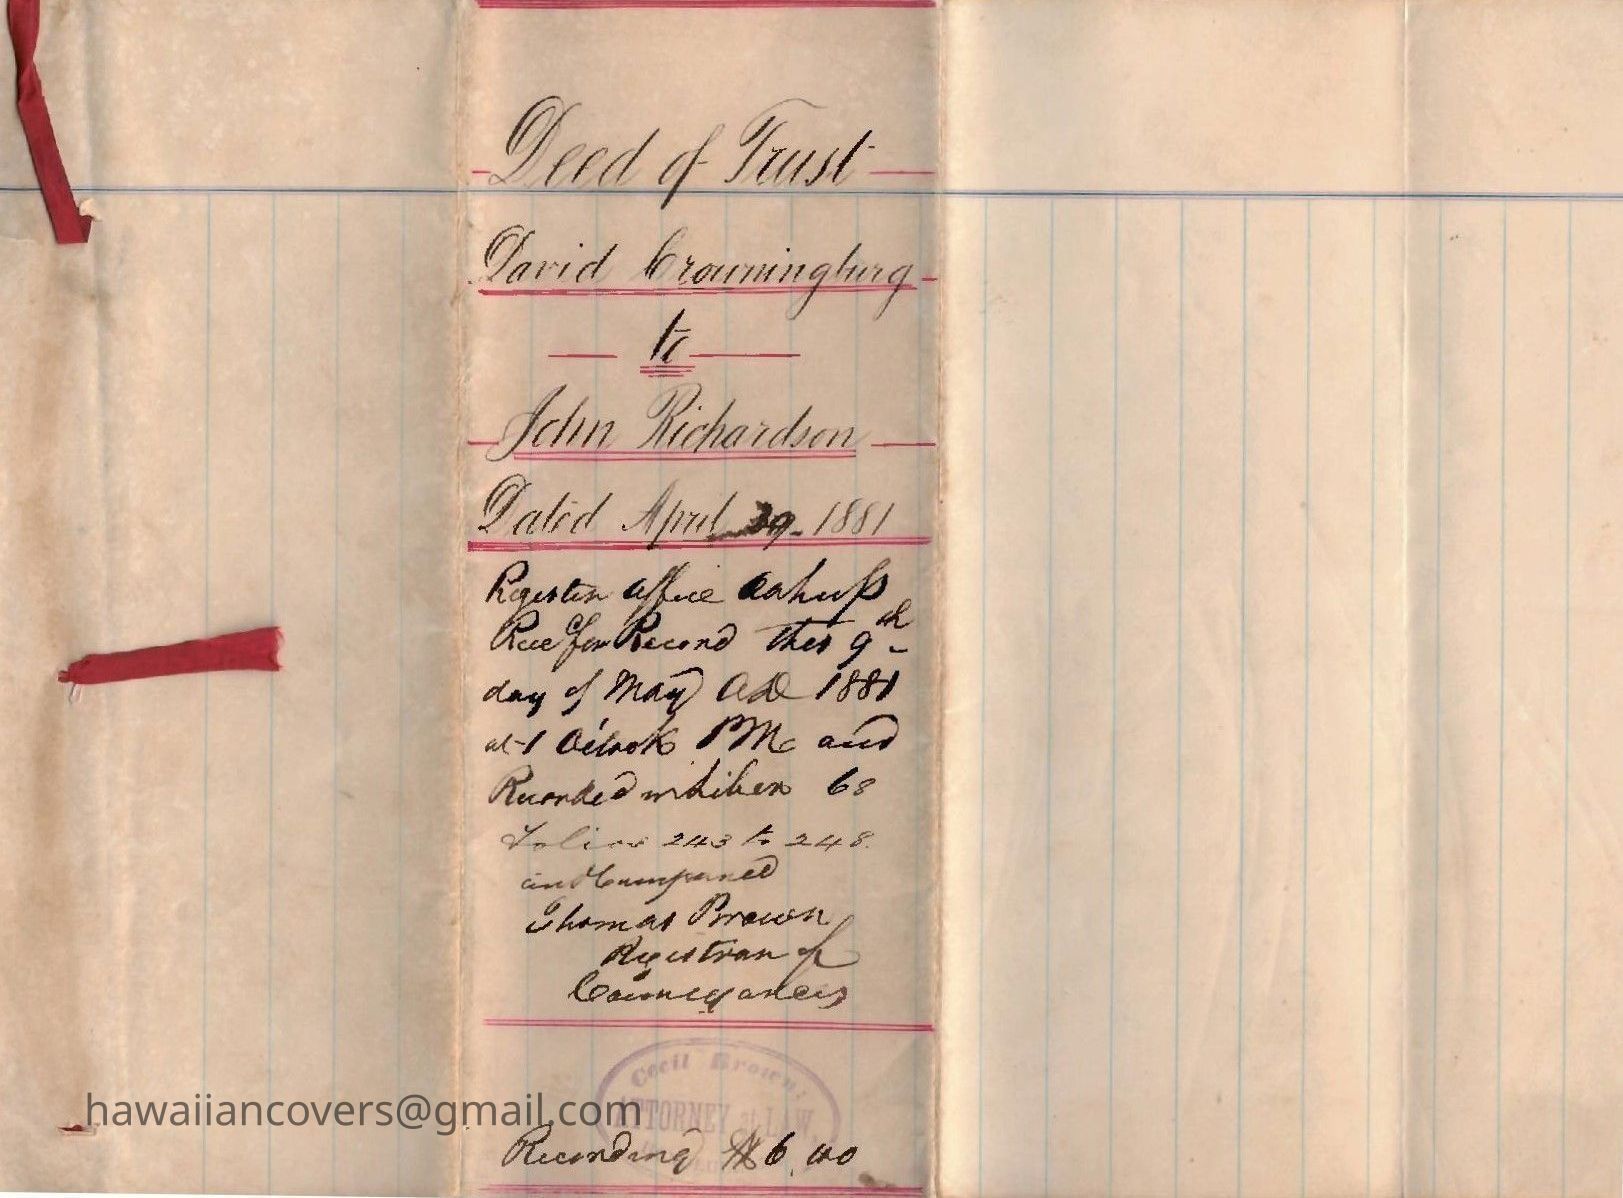 Deed of Trust
David Crowningburg
to
John Richardson
Dated April 29 1881
Register Office Oahu ss
Recd for Record this 9th
day of May AD 1881
at 1 O'clock PM and
Recorded in Liber 68
Folios 243 to 248.
and Compared
Thomas Brown
Registrar of
Conveyances
Cecil Brown,
ATTORNEY at LAW
hawaiiancovers@gmail.com
Recording $6.00